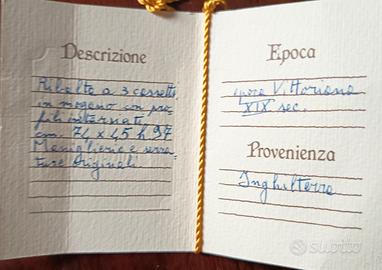 Descrizione
Ribalta a 3 cassetti
in mogano con pro=
fili intarsiati.
cm. 74 x 45 h 97
Maniglierie e serra=
ture originali
Epoca
epoca Vittoriana
XIX sec.
Provenienza
Inghilterra
subito